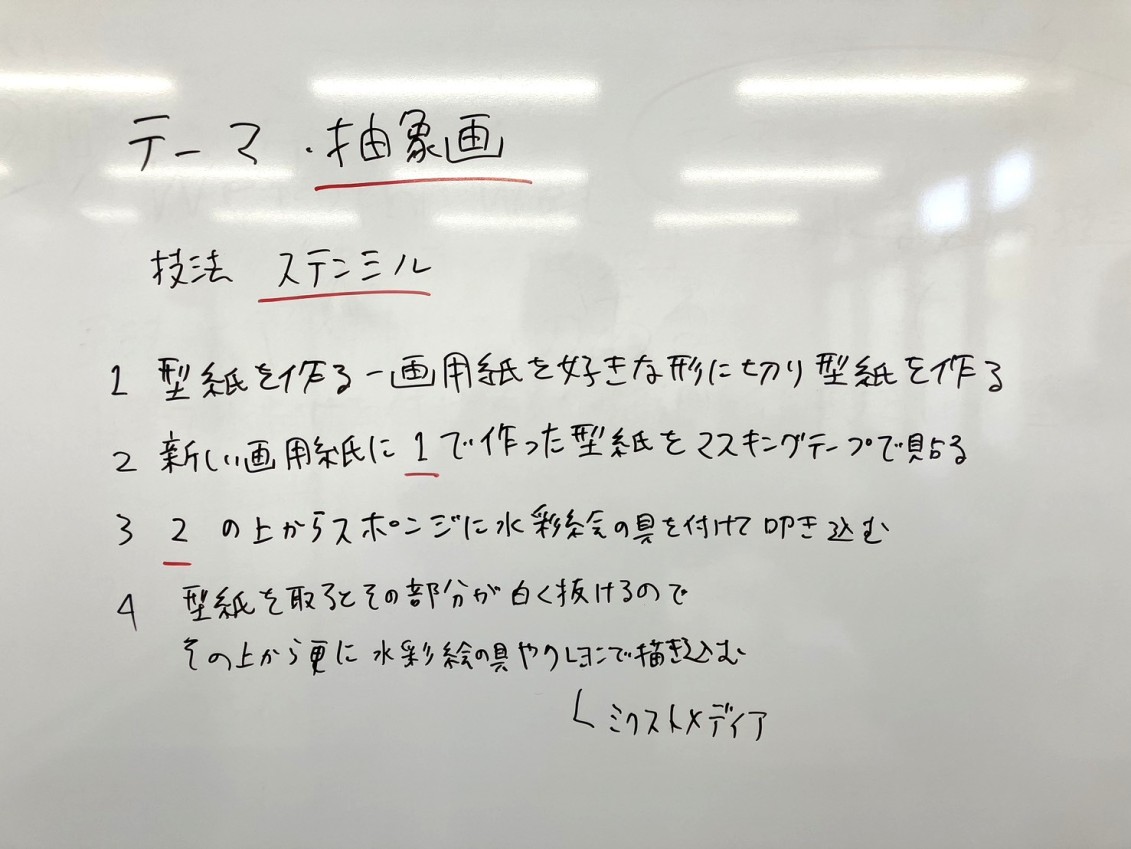 テーマ・抽象画
技法 ステンミル
1 型紙を作る－画用紙を好きな形に切り型紙を作る
2 新しい画用紙に1で作った型紙をマスキングテープで貼る
3 2の上からスポンジに水彩絵の具を付けて叩き込む
4 型紙を取るとその部分が白く抜けるので
その上から更に水彩絵の具やクレヨンで描き込む
ミクストメディア